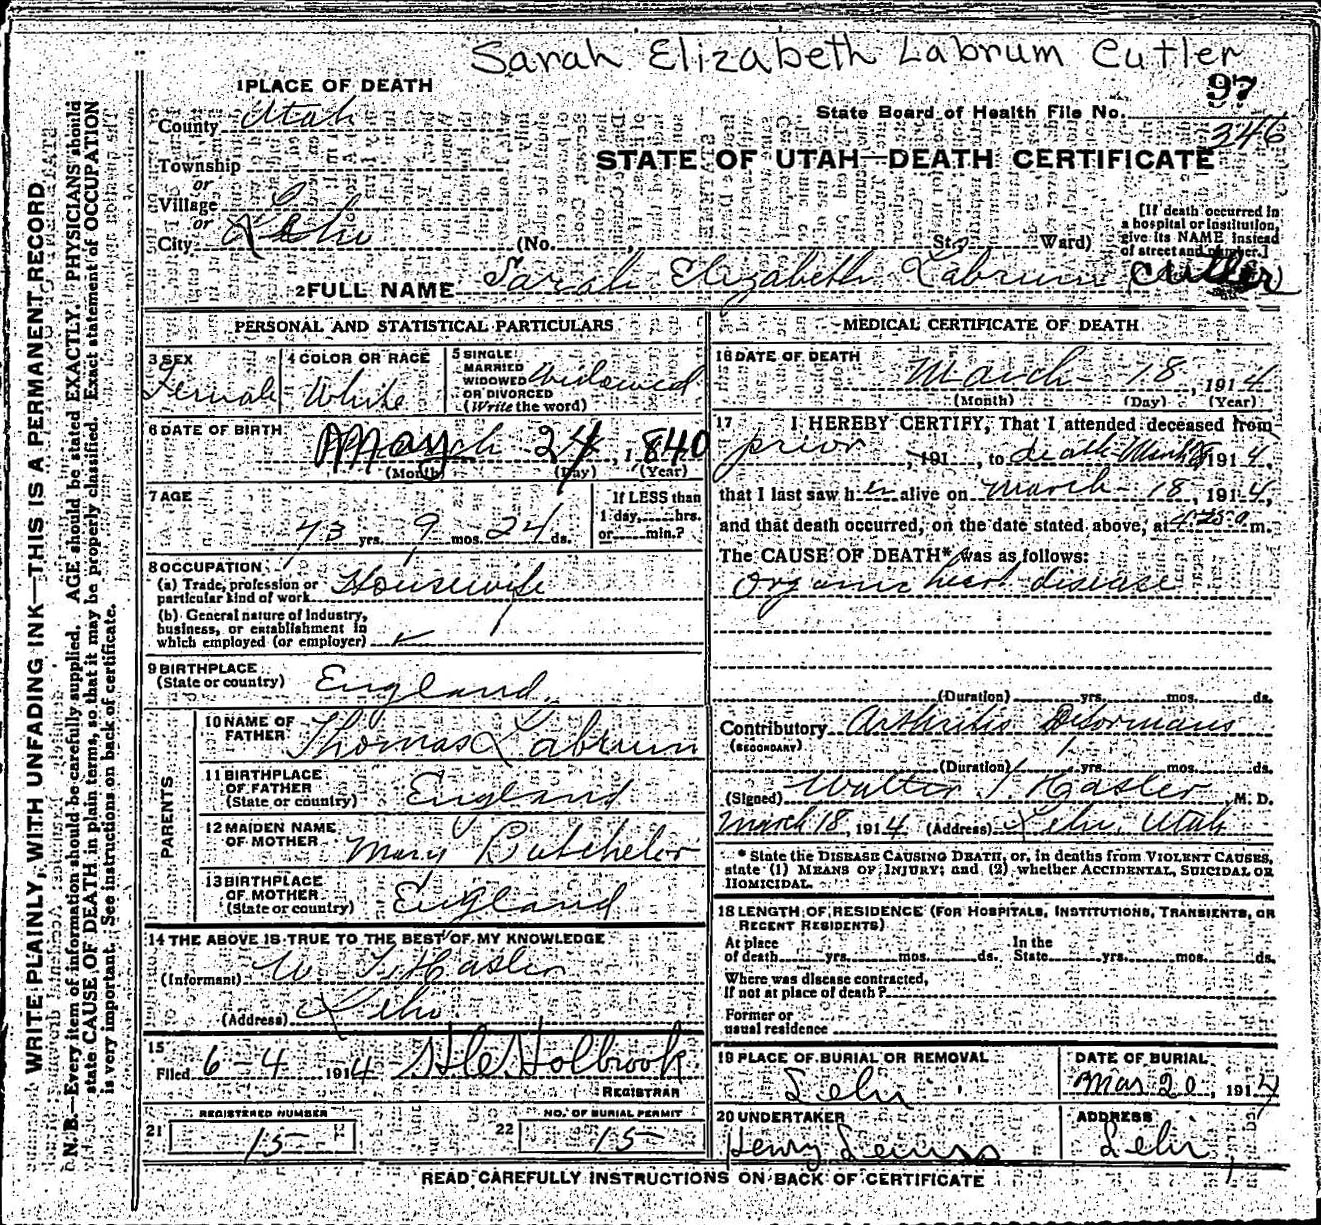 Sarah Elizabeth Labrum Cutler
97
1 PLACE OF DEATH
County Utah
State Board of Health File No.
346
Township
STATE OF UTAH—DEATH CERTIFICATE
or
Village
or
City Lehi (No. St., Ward)
[If death occurred in
a hospital or institution,
give its NAME instead
of street and number.]
2 FULL NAME Sarah Elizabeth Labrum Cutler
PERSONAL AND STATISTICAL PARTICULARS
3 SEX
Female
4 COLOR OR RACE
White
5 SINGLE
MARRIED
WIDOWED
OR DIVORCED
(Write the word)
Widowed
6 DATE OF BIRTH
May 24, 1840
(Month) (Day) (Year)
7 AGE
73 yrs. 9 mos. 24 ds.
If LESS than
1 day, hrs.
or min.?
8 OCCUPATION
(a) Trade, profession or
particular kind of work Housewife
(b) General nature of Industry,
business, or establishment in
which employed (or employer)
9 BIRTHPLACE
(State or country) England
PARENTS
10 NAME OF
FATHER Thomas Labrum
11 BIRTHPLACE
OF FATHER
(State or country) England
12 MAIDEN NAME
OF MOTHER Mary Butchelor
13 BIRTHPLACE
OF MOTHER
(State or country) England
14 THE ABOVE IS TRUE TO THE BEST OF MY KNOWLEDGE
(Informant) W T Hasler
(Address) Lehi
15
Filed 6-4 1914 Holbrook
REGISTRAR
REGISTERED NUMBER
21 15
NO. OF BURIAL PERMIT
22 15
MEDICAL CERTIFICATE OF DEATH
16 DATE OF DEATH
March 18, 1914
(Month) (Day) (Year)
17 I HEREBY CERTIFY, That I attended deceased from
prior, 191, to death March 18 1914,
that I last saw her alive on March 18, 1914,
and that death occurred, on the date stated above, at m.
The CAUSE OF DEATH* was as follows:
Organic heart disease
(Duration) yrs. mos. ds.
Contributory Arthritis Deformans
(SECONDARY)
(Duration) yrs. mos. ds.
(Signed) Walter T Hasler, M. D.
March 18, 1914 (Address) Lehi, Utah
* State the DISEASE CAUSING DEATH, or, in deaths from VIOLENT CAUSES,
state (1) MEANS OF INJURY; and (2) whether ACCIDENTAL, SUICIDAL OR
HOMICIDAL.
18 LENGTH OF RESIDENCE (FOR HOSPITALS, INSTITUTIONS, TRANSIENTS, OR
RECENT RESIDENTS)
At place
of death yrs. mos. ds.
In the
State yrs. mos. ds.
Where was disease contracted,
If not at place of death?
Former or
usual residence
19 PLACE OF BURIAL OR REMOVAL
Lehi
DATE OF BURIAL
Mar 20, 1914
20 UNDERTAKER
Henry Lewis
ADDRESS
Lehi
READ CAREFULLY INSTRUCTIONS ON BACK OF CERTIFICATE
WRITE PLAINLY, WITH UNFADING INK—THIS IS A PERMANENT RECORD
N. B.—Every item of information should be carefully supplied. AGE should be stated EXACTLY. PHYSICIANS should
state CAUSE OF DEATH in plain terms, so that it may be properly classified. Exact statement of OCCUPATION
is very important. See instructions on back of certificate.